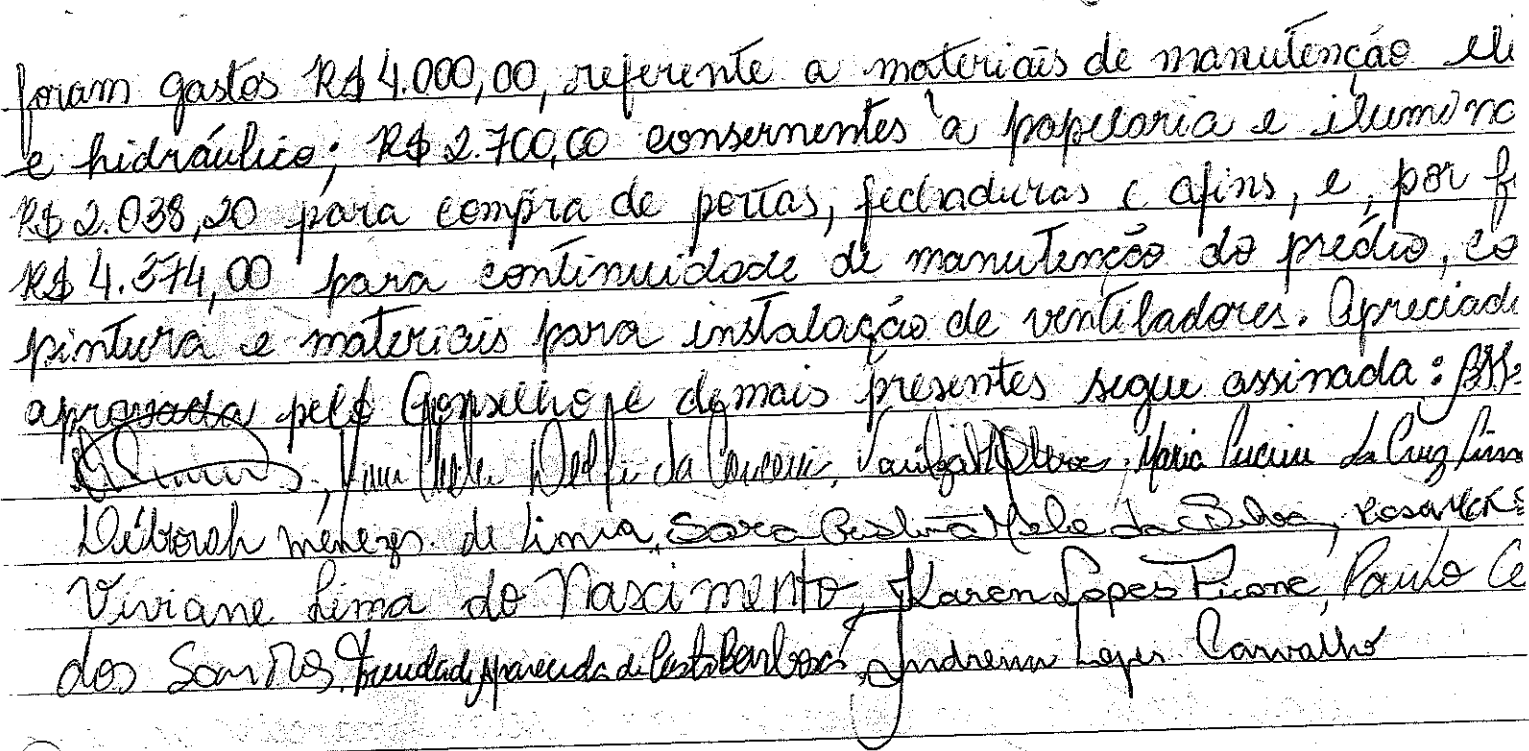 foram gastos R$ 4.000,00, referente a materiais de manutenção elé
e hidráulico; R$ 2.700,00 consernentes à papelaria e ilumina
R$ 2.038,20 para compra de portas, fechaduras e afins, e, por fi
R$ 4.374,00 para continuidade de manutenção do prédio, co
pintura e materiais para instalação de ventiladores. Apreciada
aprovada pelo Conselho e demais presentes segue assinada:
da Maria da Cruz Lima
Déborah menezes de Lima, Sara Melo da Silva,
Viviane Lima do Nascimento, Karen Lopes Paulo Ce
dos Santos, Aparecida de Barbosa, Lopes Carvalho